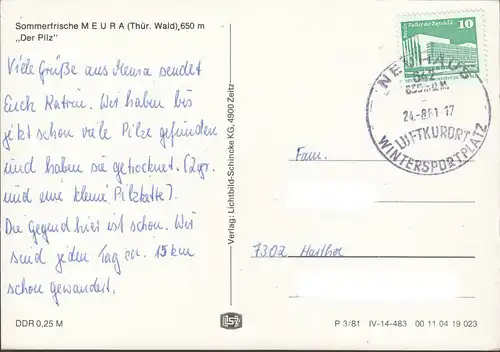 Sommerfrische MEURA (Thür. Wald), 650 m
„Der Pilz"
Viele Grüße aus Meura sendet
Euch Katrin. Wir haben bis
jetzt schon viele Pilze gefunden
und haben sie getrocknet. (2 gr.
und eine kleine Pilzkette).
Die Gegend hier ist schön. Wir
sind jeden Tag ca. 15 km
schon gewandert.
DDR 0,25 M
Verlag: Lichtbild-Schincke KG, 4900 Zeitz
10
NEUHAUS
642
835 m ü. M.
24.-8.81-17
LUFTKURORT
WINTERSPORTPLATZ
Fam.
7302 Hartha
P 3/81 IV-14-483 00 11 04 19 023